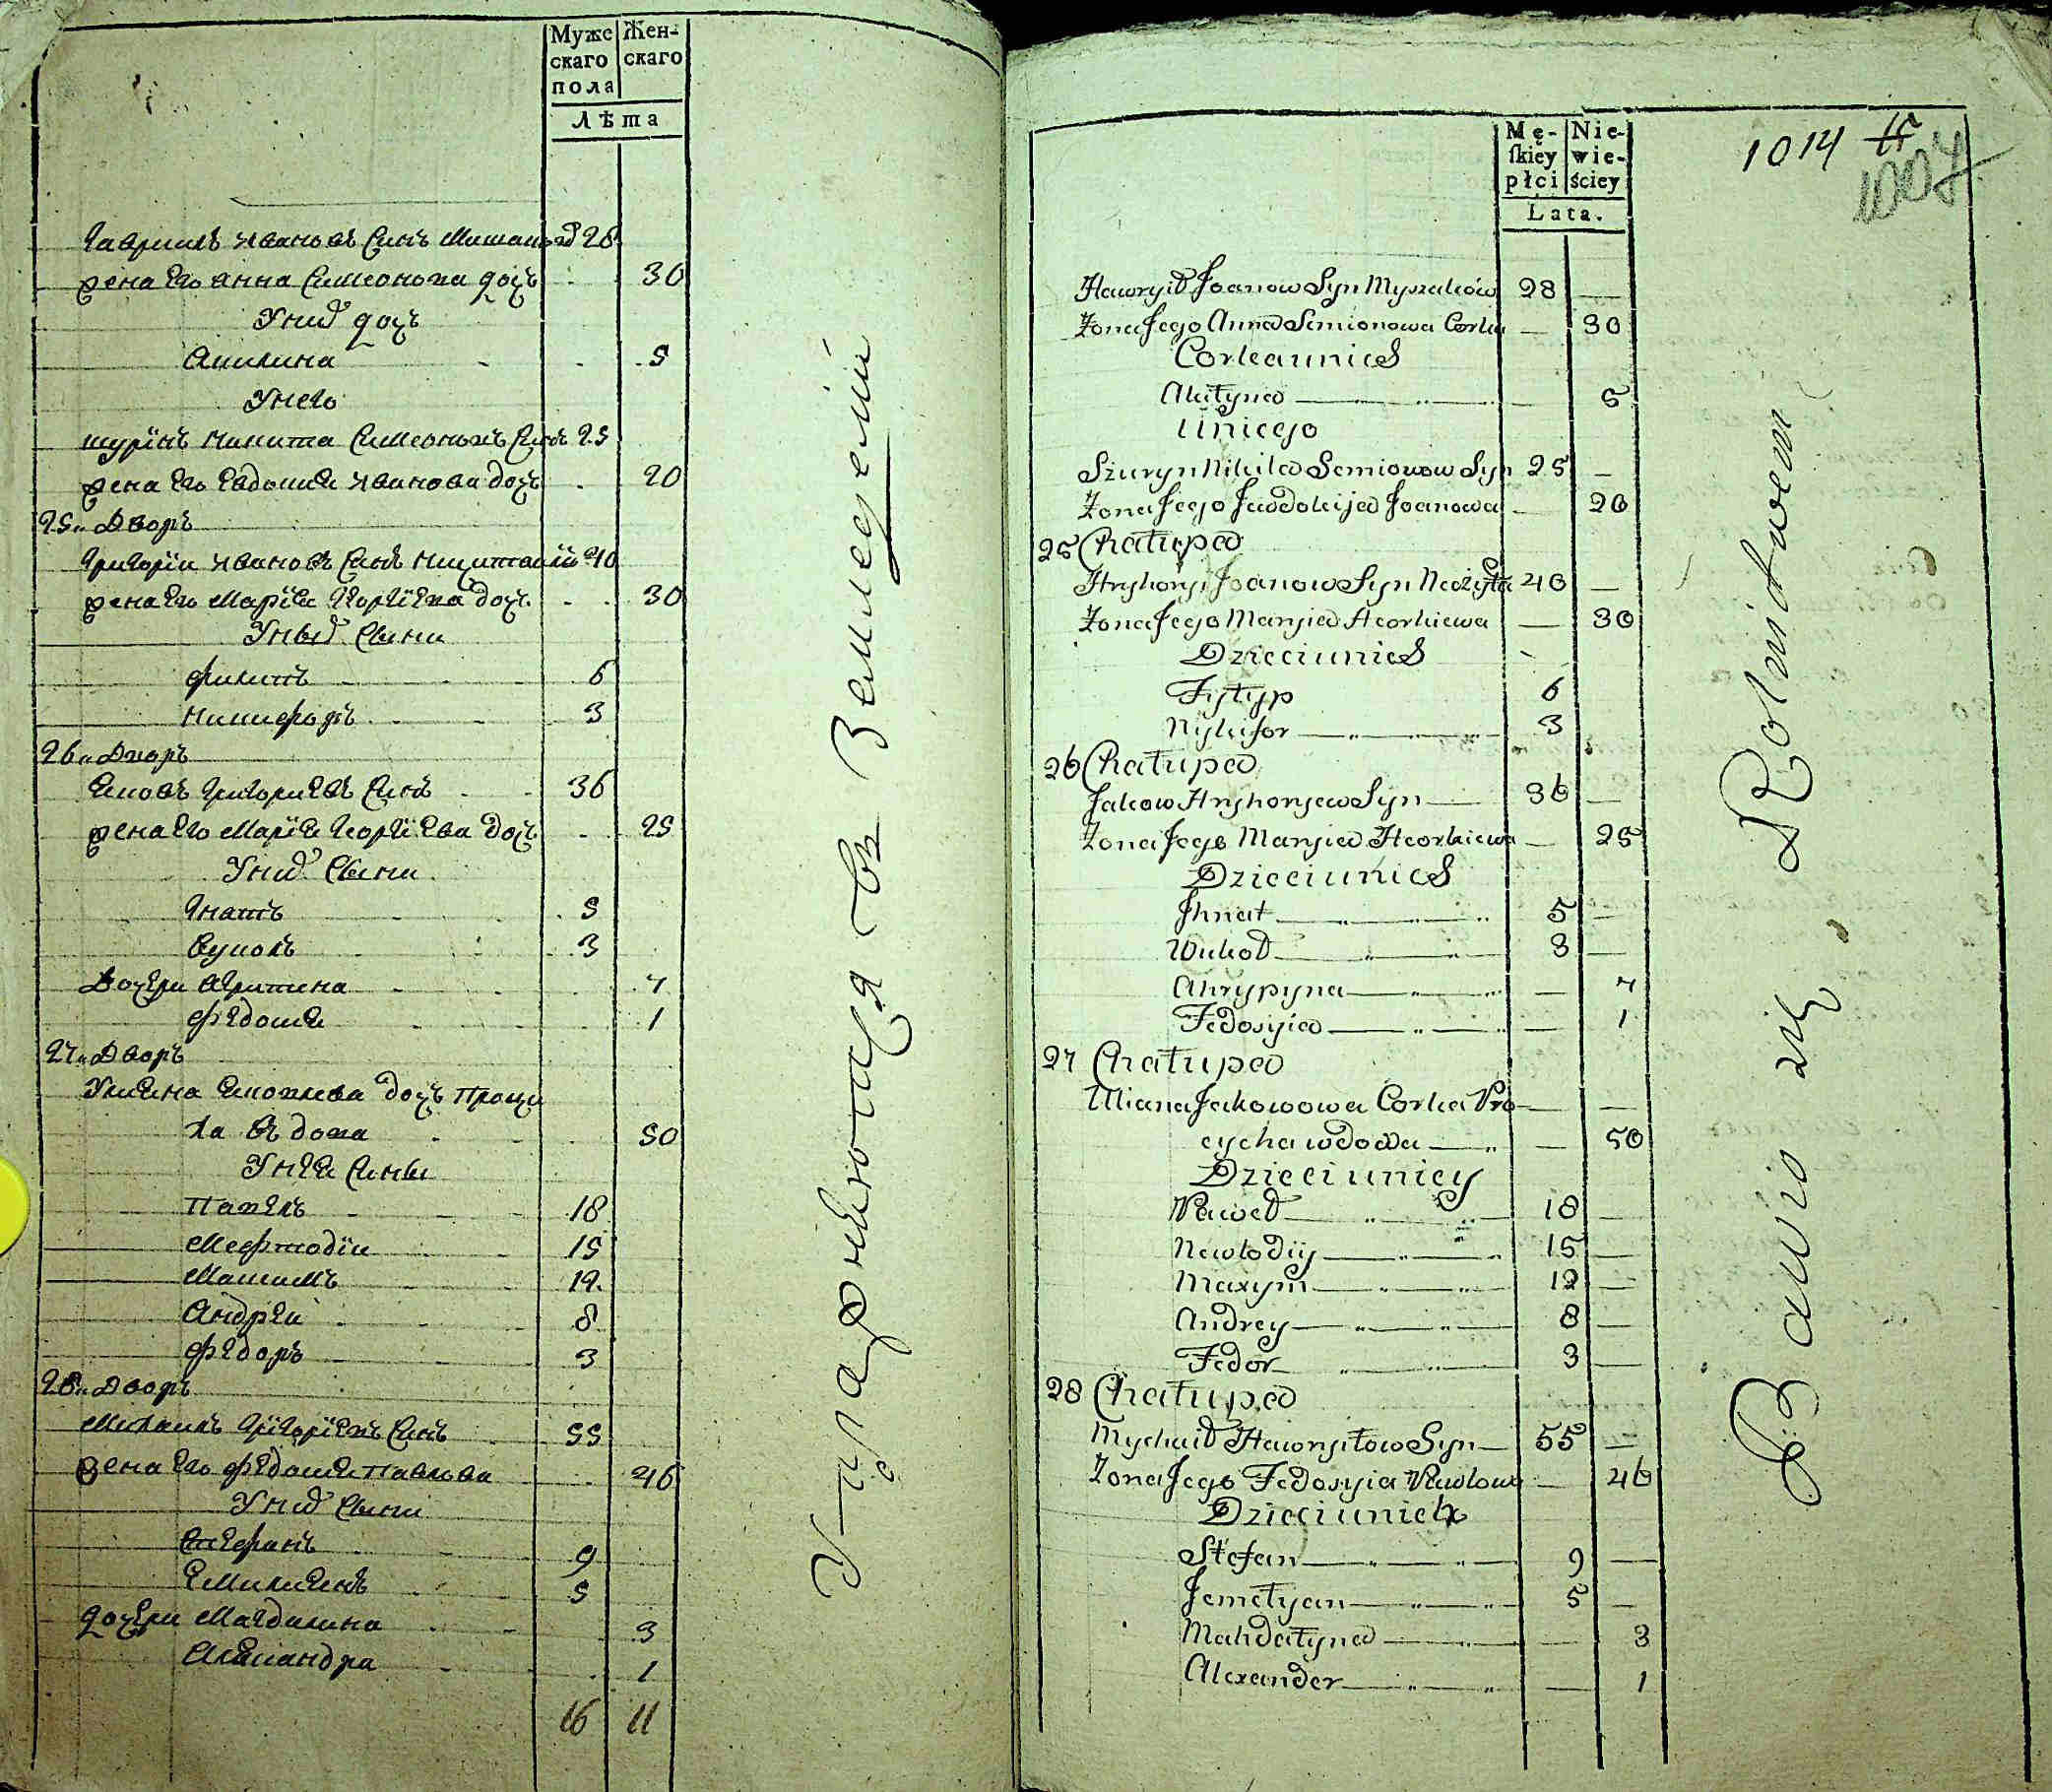 Муже Жен-
скаго скаго
пола
Лѣта
Гаврилъ Ивановъ Синъ 28
жена Его Анна Симеонова дочъ 30
Унид дочъ
Акилина 5
Унего
шуринъ Никита Симеоновъ Синъ 25
жена Его Евдокия Иванова дочъ 20
25 Дворъ
Григории Ивановъ Синъ 40
жена Его Мария Георгіева дочъ 30
Унид Сыни
Филипъ 6
Никифоръ 3
26 Дворъ
Яковъ Григориевъ Синъ 36
жена Его Мария Георгіева дочъ 25
Унид Сыни
Игнатъ 5
Вуколъ 3
Дочери Агрипина 7
Федосия 1
27 Дворъ
Улияна Яковлева дочъ Проци
ха вдова 50
Унея Сины
Павелъ 18
Мефтодіи 15
Максимъ 12
Андреи 8
Федоръ 3
28 Дворъ
Михаилъ Григоріевъ Синъ 55
жена Его Федосия Павлова 46
Унид Сыни
Стефанъ 9
Емилиянъ 5
дочери Магдалина 3
Александра 1
16 11
Упражнюются въ Земледелій
Mę- Nie-
ſkiey wie-
płci ściey
Lata.
1014
1007
Hawryił Joanow Syn Myszaków 28 —
Żona Jego Anna Semionowa Corka — 30
Corka unich
Akiłyna — 5
Uniego
Szuryn Nikita Semionow Syn 25 —
Żona Jego Jawdokija Joanowa — 20
25 Chałupa
Hryhory Joanow Syn 40 —
Żona Jego Maryia Heorhiewa — 30
Dzieci unich
Fyłyp 6
Nykifor 3
26 Chałupa
Jakow Hryhoryew Syn 36 —
Żona Jego Maryia Heorhiewa — 25
Dzieci unich
Jhnat 5 —
Wukoł 3 —
Ahrypyna — 7
Fedosyia — 1
27 Chałupa
Uliana Jakowowa Corka Pro — —
cycha wdowa — 50
Dzieci unicy
Paweł 18 —
Mewtodiy 15 —
Maxym 12 —
Andrey 8 —
Fedor 3 —
28 Chałupa
Mychaił Hawryłow Syn 55 —
Żona Jego Fedosyia Pawłowa — 46
Dzieci unich
Stefan 9 —
Jemełyan 5 —
Mahdałyna — 3
Alexander — 1
Bawio się Rolnictwem